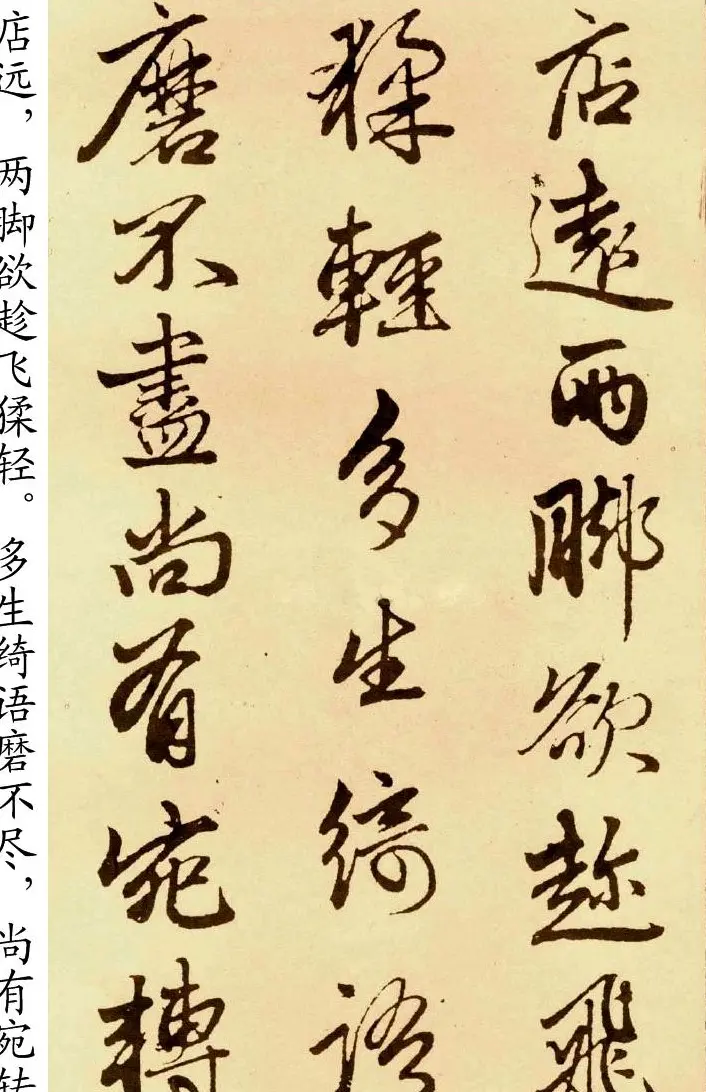 店遠兩脚欲趂飛
猱輕多生綺語
磨不盡尚有宛轉
店远，两脚欲趁飞猱轻。多生绮语磨不尽，尚有宛转